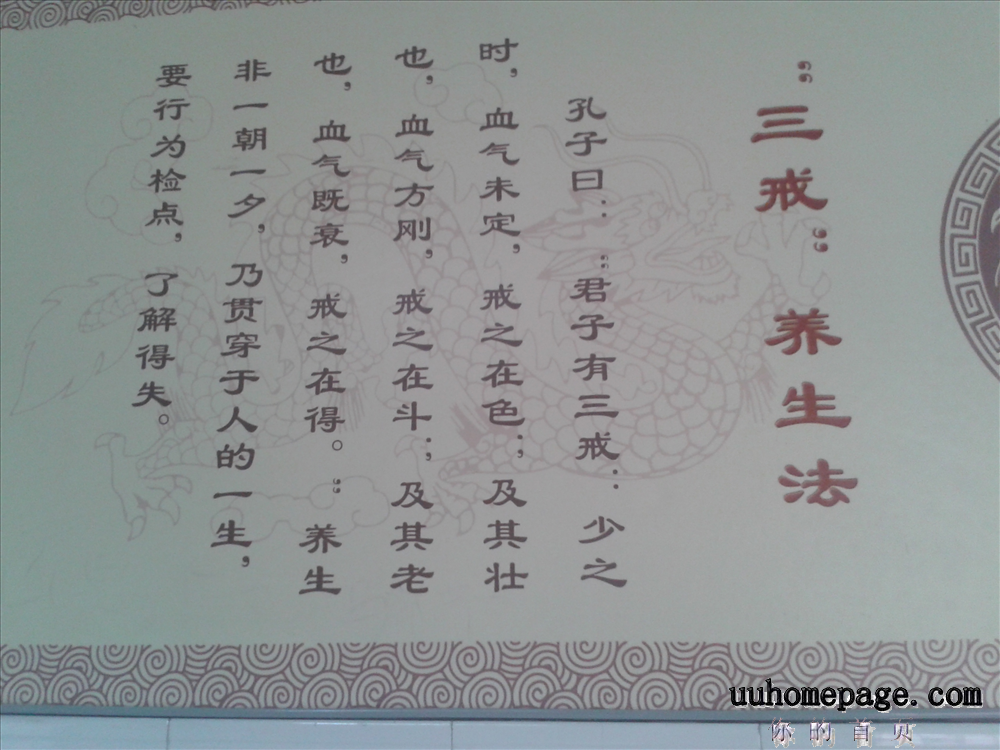 “三戒”养生法
孔子曰：“君子有三戒：少之
时，血气未定，戒之在色；及其壮
也，血气方刚，戒之在斗；及其老
也，血气既衰，戒之在得。”养生
非一朝一夕，乃贯穿于人的一生，
要行为检点，了解得失。
uuhomepage.com
你的首页